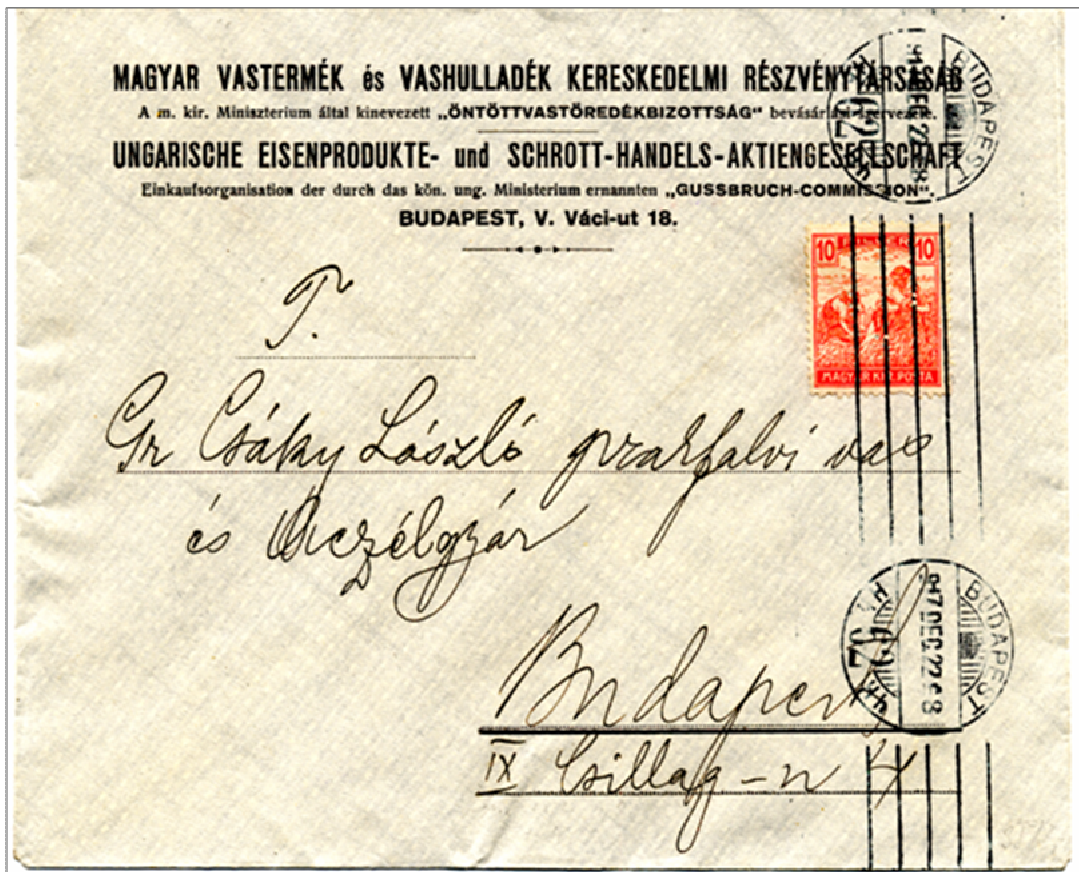 MAGYAR VASTERMÉK és VASHULLADÉK KERESKEDELMI RÉSZVÉNYTÁRSASÁG
A m. kir. Miniszterium által kinevezett „ÖNTÖTTVASTÖREDÉKBIZOTTSÁG“ bevásárlási szervezete.
UNGARISCHE EISENPRODUKTE- und SCHROTT-HANDELS-AKTIENGESELLSCHAFT
Einkaufsorganisation der durch das kön. ung. Ministerium ernannten „GUSSBRUCH-COMMISSION“.
BUDAPEST, V. Váci-ut 18.
BUDAPEST
10 10
MAGYAR KIR. POSTA
T.
Gr Csáky László prakfalvi vas
és Aczélgyár
Budapest
IX Csillag-u 4
BUDAPEST
917 DEC 22 6 8